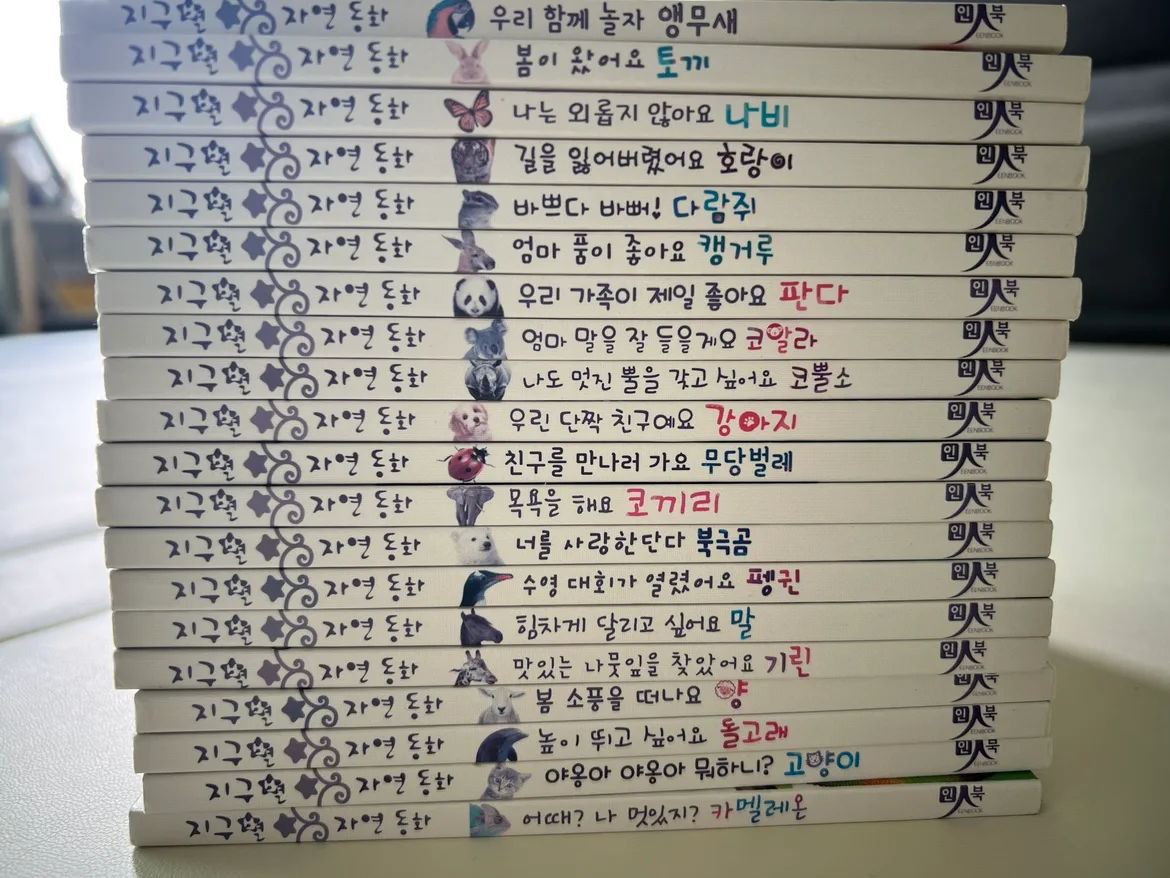 지구별 자연 동화 우리 함께 놀자 앵무새 인북
지구별 자연 동화 봄이 왔어요 토끼 인북
지구별 자연 동화 나는 외롭지 않아요 나비 인북 EENBOOK
지구별 자연 동화 길을 잃어버렸어요 호랑이 인북 EENBOOK
지구별 자연 동화 바쁘다 바뻐! 다람쥐 인북 EENBOOK
지구별 자연 동화 엄마 품이 좋아요 캥거루 인북 EENBOOK
지구별 자연 동화 우리 가족이 제일 좋아요 판다 인북 EENBOOK
지구별 자연 동화 엄마 말을 잘 들을게요 코알라 인북 EENBOOK
지구별 자연 동화 나도 멋진 뿔을 갖고 싶어요 코뿔소 인북 EENBOOK
지구별 자연 동화 우린 단짝 친구예요 강아지 인북 EENBOOK
지구별 자연 동화 친구를 만나러 가요 무당벌레 인북 EENBOOK
지구별 자연 동화 목욕을 해요 코끼리 인북 EENBOOK
지구별 자연 동화 너를 사랑한단다 북극곰 인북 EENBOOK
지구별 자연 동화 수영 대회가 열렸어요 펭귄 인북 EENBOOK
지구별 자연 동화 힘차게 달리고 싶어요 말 인북 EENBOOK
지구별 자연 동화 맛있는 나뭇잎을 찾았어요 기린 인북 EENBOOK
지구별 자연 동화 봄 소풍을 떠나요 양 인북
지구별 자연 동화 높이 뛰고 싶어요 돌고래 인북 EENBOOK
지구별 자연 동화 야옹아 야옹아 뭐하니? 고양이 인북 EENBOOK
지구별 자연 동화 어때? 나 멋있지? 카멜레온 인북 EENBOOK